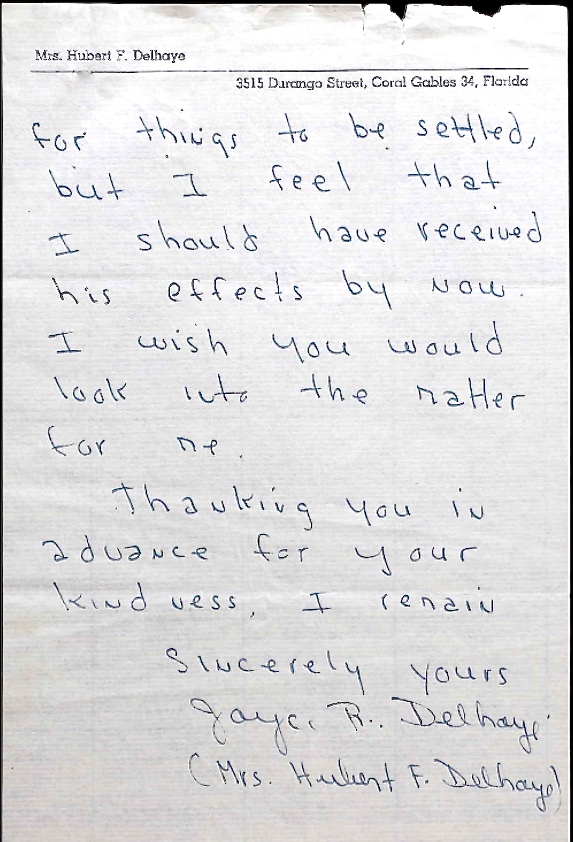 Mrs. Hubert F. Delhaye
3515 Durango Street, Coral Gables 34, Florida
for things to be settled,
but I feel that
I should have received
his effects by now.
I wish you would
look into the matter
for me.
Thanking you in
advance for your
kindness, I remain
Sincerely yours
Joyce R. Delhaye
(Mrs. Hubert F. Delhaye)